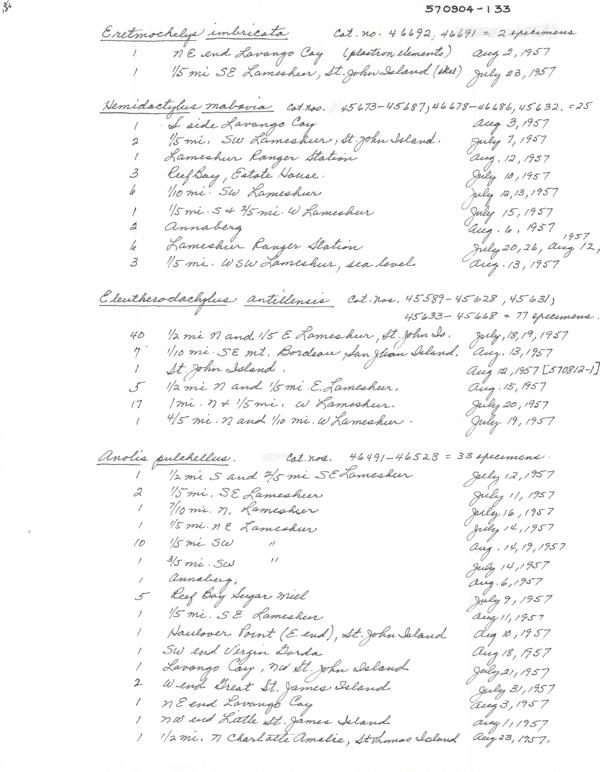 570904-133
Eretmochelys imbricata Cat. no. 46692, 46691 = 2 specimens
1 NE end Lovango Cay (plastron elements) Aug 2, 1957
1 1/5 mi SE Lameshur, St. John Island (skel) July 23, 1957
Hemidactylus mabouia Cat nos. 45673-45687, 46678-46686, 45632. = 25
1 S side Lovango Cay Aug 3, 1957
2 1/5 mi. SW Lameshur, St John Island. July 7, 1957
1 Lameshur Ranger Station Aug. 12, 1957
3 Reef Bay, Estate House. July 10, 1957
6 1/10 mi. SW Lameshur July 12, 13, 1957
1 1/5 mi. S + 2/5 mi. W Lameshur July 15, 1957
2 Annaberg Aug. 6, 1957
6 Lameshur Ranger Station July 20, 26, Aug 12, 1957
3 1/5 mi. WSW Lameshur, sea level Aug. 13, 1957
Eleutherodactylus antillensis Cat. nos. 45589-45628, 45631,
45633-45668 = 77 specimens.
40 1/2 mi N and 1/5 E Lameshur, St. John Is. July, 18, 19, 1957
7 1/10 mi. SE mt. Bordeau San Juan Island. Aug. 13, 1957
1 St. John Island. Aug 12, 1957 [570812-1]
5 1/2 mi N and 1/5 mi E. Lameshur. Aug. 15, 1957
17 1 mi. N + 1/5 mi. W Lameshur. July 20, 1957
1 4/5 mi. N and 1/10 mi. W Lameshur. July 19, 1957
Anolis pulchellus. Cat. nos. 46491-46523 = 33 specimens.
1 1/2 mi S and 2/5 mi. SE Lameshur July 12, 1957
2 1/5 mi. SE Lameshur July 11, 1957
1 7/10 mi. N. Lameshur July 16, 1957
1 1/5 mi. NE Lameshur July 14, 1957
10 1/5 mi. SW " Aug. 14, 19, 1957
1 3/5 mi. SW " July 14, 1957
1 Annaberg. Aug. 6, 1957
5 Reef Bay Sugar Mill July 9, 1957
1 1/5 mi. SE Lameshur Aug 11, 1957
1 Haulover Point (E. end), St. John Island Aug 10, 1957
1 SW end Virgin Gorda Aug 18, 1957
1 Lovango Cay, NW St. John Island July 21, 1957
2 W end Great St. James Island July 31, 1957
1 NE end Lovango Cay Aug 3, 1957
1 NW end Little St. James Island Aug 1, 1957
1 1/2 mi. N Charlotte Amalie, St Thomas Island Aug 23, 1957.